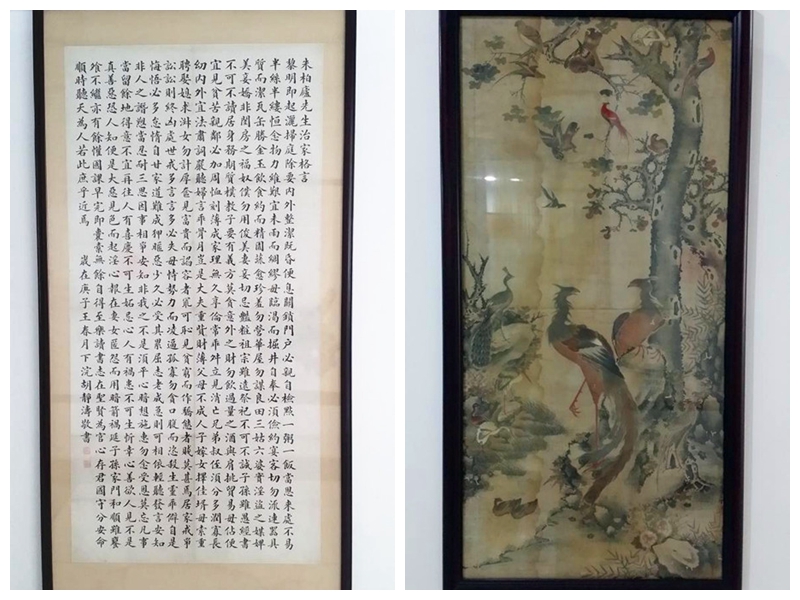 朱柏廬先生治家格言
黎明即起灑掃庭除要內外整潔既昏便息關鎖門户必親自檢點一粥一飯當思來處不易
半絲半縷恒念物力維艱宜未雨而綢繆毋臨渴而掘井自奉必須儉約宴客切勿流連器具
質而潔瓦缶勝金玉飲食約而精園蔬愈珍羞勿營華屋勿謀良田三姑六婆實淫盜之媒婢
美妾嬌非閨房之福奴僕勿用俊美妻妾切忌艷粧祖宗雖遠祭祀不可不誠子孫雖愚經書
不可不讀居身務期質樸教子要有義方莫貪意外之財勿飲過量之酒與肩挑貿易毋佔便
宜見貧苦親鄰必加周恤刻薄成家理無久享倫常乖舛立見消亡兄弟叔侄須分多潤寡長
幼內外宜法肅詞嚴聽婦言乖骨月豈是丈夫重貲財薄父母不成人子嫁女擇佳壻毋索重
聘娶媳求淑女勿計厚奩見富貴而諂容者最可恥見貧窮而作驕態者賤莫甚焉居家戒爭
訟訟則終凶處世戒多言言多必失毋恃勢力而凌逼孤寡勿貪口腹而恣殺生靈乖僻自是
悔悟必多怠惰自甘家道難成狎暱惡少久必受其累屈志老成急則可相依輕聽發言安知
非人之譖愬當忍耐三思因事相爭安知非我之不是須平心暗想施惠勿念受恩莫忘凡事
當留餘地得意不宜再往人有喜慶不可生妬忌心人有禍患不可生忻幸心善欲人見不是
真善惡恐人知便是大惡見色而起淫心報在妻女匿怨而用暗箭禍延子孫家門和順雖饔
飧不繼亦有餘懽國課早完即囊橐無餘自得至樂讀書志在聖賢為官心存君國守分安命
順時聽天為人若此庶乎近焉 歲在庚子王春月下浣胡靜濤敬書